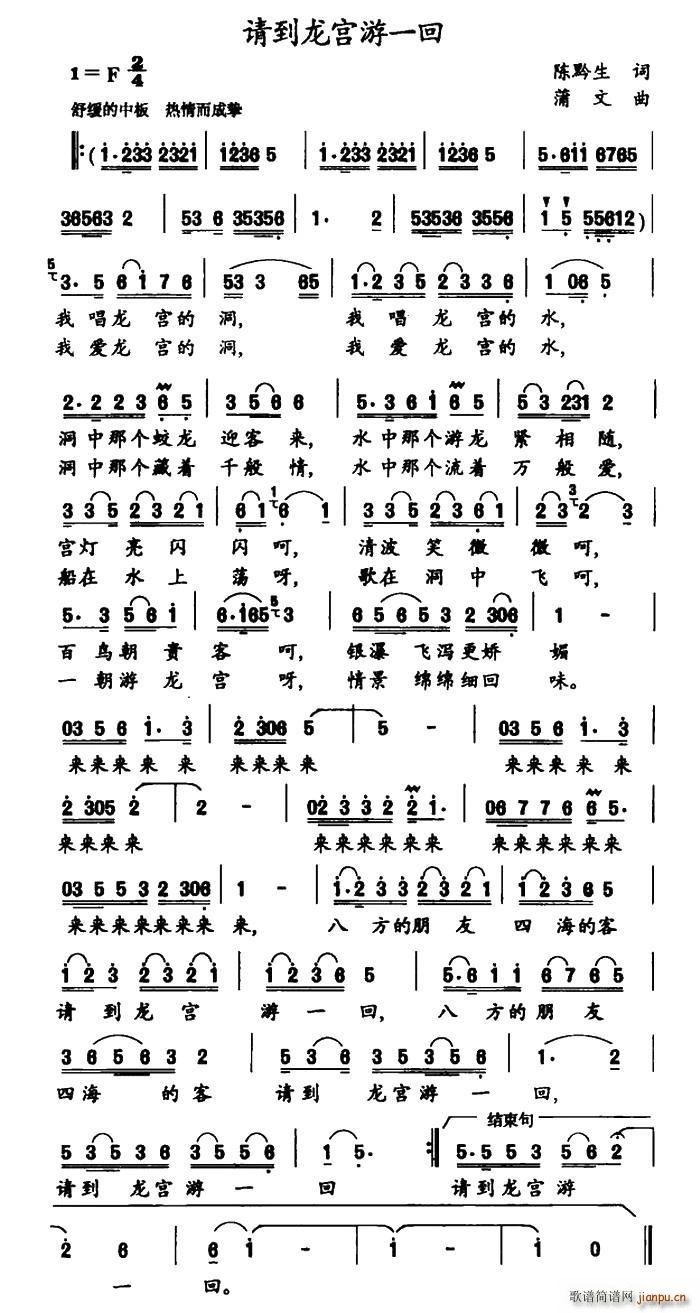 请到龙宫游一回
1=F 2/4
陈黔生 词
舒缓的中板 热情而成挚
蒲文 曲
(1·233 2321 | 1236 5 | 1·233 2321 | 1236 5 | 5·611 6765 |
36563 2 | 53 6 35356 | 1· 2 | 53536 3556 | 1 5 55612)
3· 5 6 1 7 6 | 53 3 65 | 1·2 3 5 2 3 3 6 | 1 06 5
我唱龙宫的洞, 我唱龙宫的水,
我爱龙宫的洞, 我爱龙宫的水,
2·2 2 3 6 5 | 3 5 6 6 | 5·3 6 1 6 5 | 5 3 231 2
洞中那个蛟龙迎客来, 水中那个游龙紧相随,
洞中那个藏着千般情, 水中那个流着万般爱,
3 3 5 2 3 2 1 | 6 1 6 1 | 3 3 5 2 3 6 1 | 2 3 2 3
宫灯亮闪闪呵, 清波笑微微呵,
船在水上荡呀, 歌在洞中飞呵,
5· 3 5 6 1 | 6·165 3 | 6 5 6 5 3 2 306 | 1 -
百鸟朝贵客呵, 银瀑飞泻更娇媚
一朝游龙宫呀, 情景绵绵细回味。
03 5 6 1· 3 | 2 306 5 | 5 - | 03 5 6 1· 3
来来来来来 来来来来 来来来来来
2 305 2 | 2 - | 02 3 3 2 3 2 1· | 06 7 7 6 6 5·
来来来来 来来来来来来 来来来来来来
03 5 5 3 2 306 | 1 - | 1·2 3 3 2 3 2 1 | 1 2 3 6 5
来来来来来来来来, 八方的朋友四海的客
1 2 3 2 3 2 1 | 1 2 3 6 5 | 5·6 1 1 6 7 6 5
请到龙宫游一回, 八方的朋友
3 6 5 6 3 2 | 5 3 5 3 5 3 5 6 | 1· 2
四海的客请到龙宫游一回,
结束句
5 3 5 3 6 3 5 5 6 | 1 5· | 5·5 5 3 5 6 2
请到龙宫游一回 请到龙宫游
2 6 | 6 1 | 1 - | 1 0
一回。
歌谱简谱网
jianpu.cn